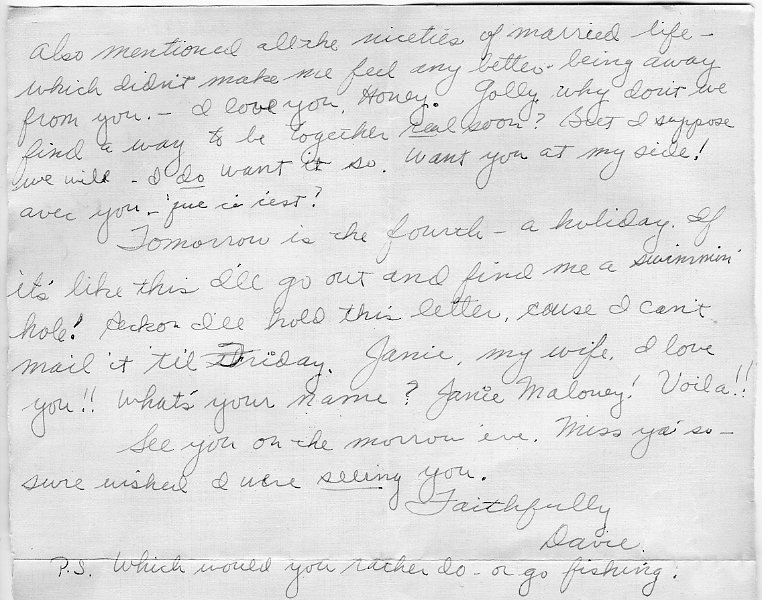 also mentioned all the niceties of married life -
which didn't make me feel any better - being away
from you. - I love you, Honey. Golly, why don't we
find a way to be together real soon? But I suppose
we will - I do want it so. Want you at my side!
avec you -
Tomorrow is the fourth - a holiday. If
it's like this I'll go out and find me a swimmin'
hole! Reckon I'll hold this letter, cause I can't
mail it 'til Friday. Janie, my wife, I love
you!! What's your name? Janie Maloney! Voila!!
See you on the morrow eve. Miss ya so -
sure wished I were seeing you.
Faithfully
Davie.
P.S. Which would you rather do - or go fishing.